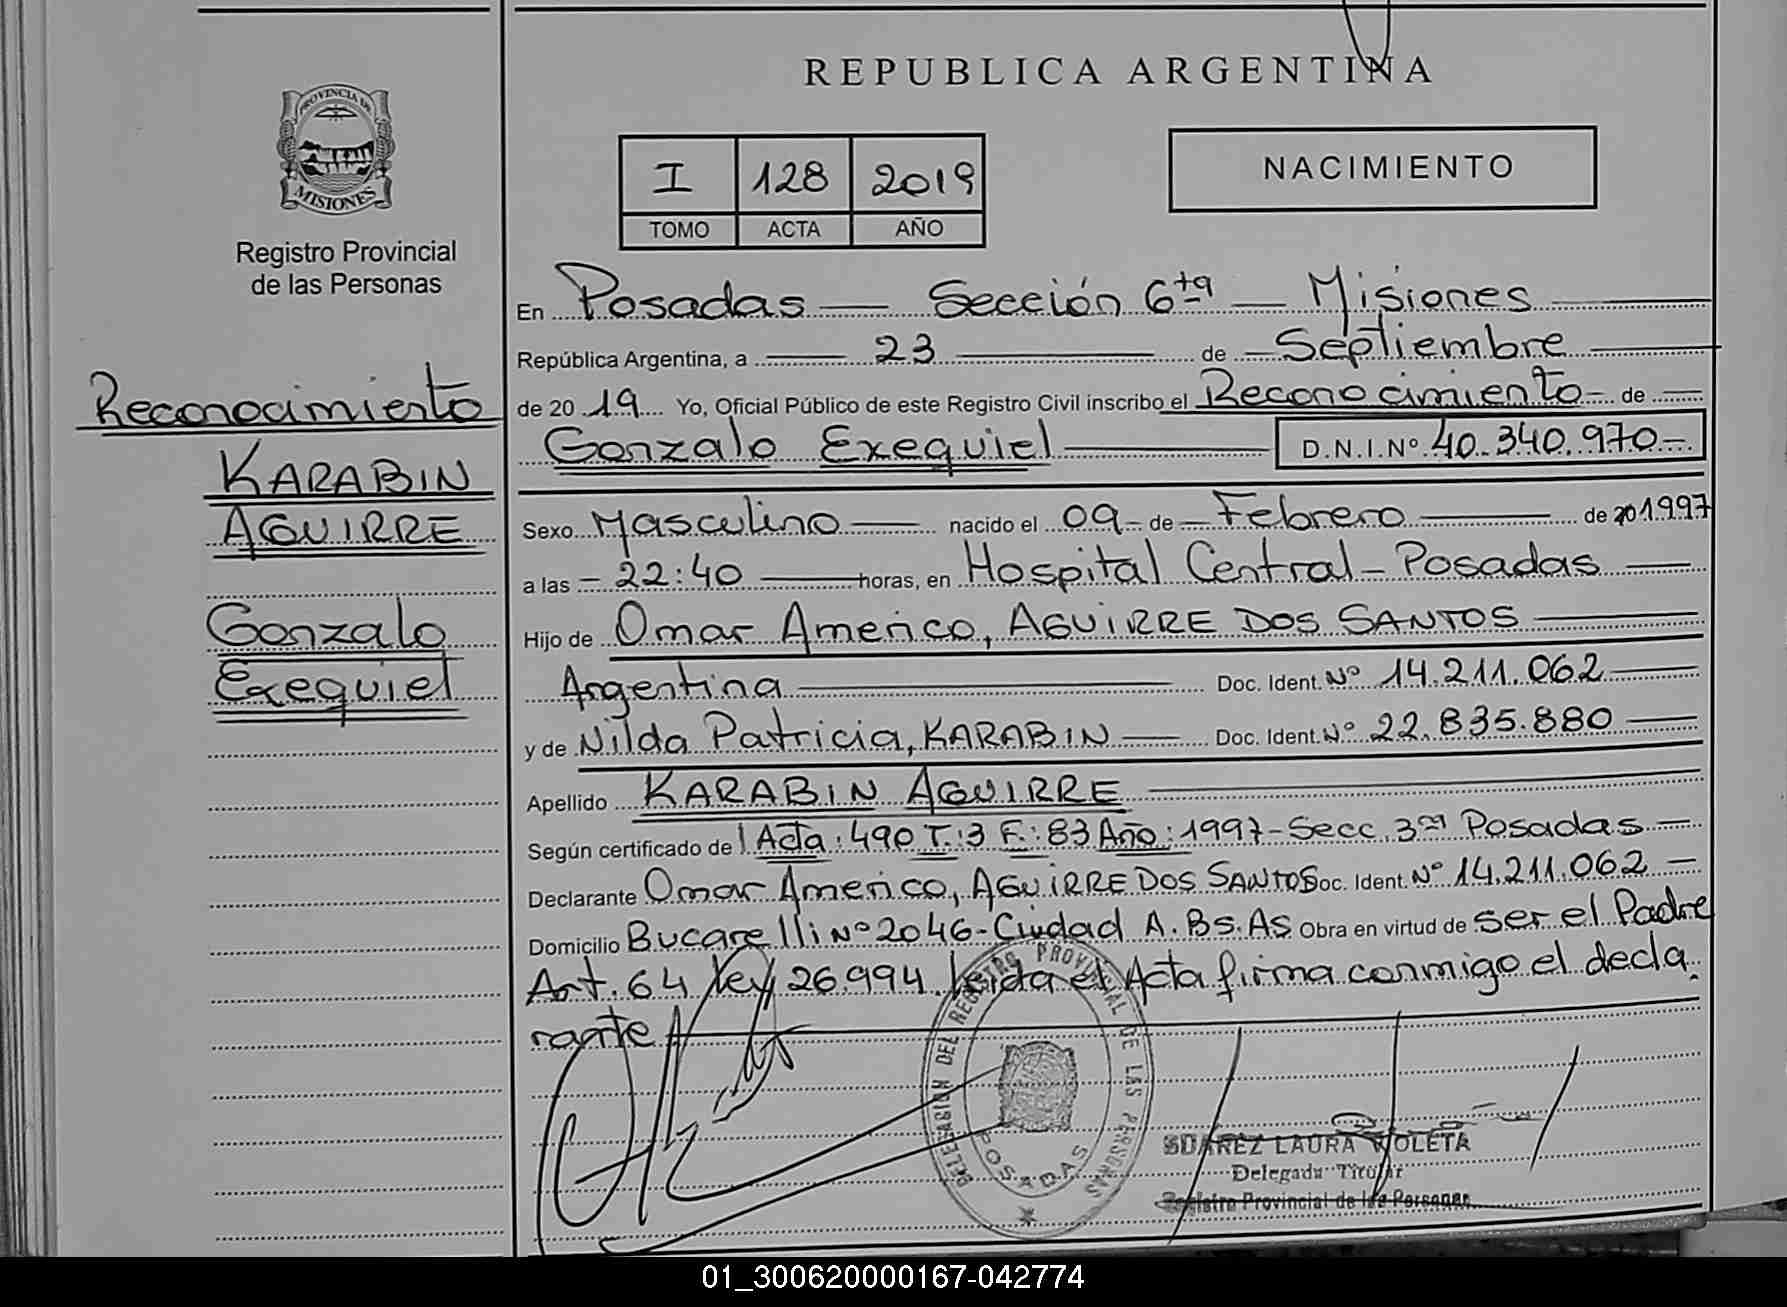 REPUBLICA ARGENTINA
PROVINCIA DE
MISIONES
Registro Provincial
de las Personas
I 128 2019
TOMO ACTA AÑO
NACIMIENTO
Reconocimiento
KARABIN
AGUIRRE
Gonzalo
Exequiel
En Posadas — Sección 6ta — Misiones
República Argentina, a — 23 — de — Septiembre
de 20 19 Yo, Oficial Público de este Registro Civil inscribo el Reconocimiento — de
Gonzalo Exequiel — D.N.I.Nº 40.340.970—
Sexo Masculino — nacido el 09 — de — Febrero — de 1997
a las — 22:40 — horas, en Hospital Central — Posadas —
Hijo de Omar Americo, AGUIRRE DOS SANTOS —
Argentina — Doc. Ident. Nº 14.211.062 —
y de Nilda Patricia, KARABIN — Doc. Ident. Nº 22.835.880 —
Apellido KARABIN AGUIRRE —
Según certificado de Acta: 490 T.:3 F.: 83 Año: 1997 - Secc. 3ra Posadas. —
Declarante Omar Americo, AGUIRRE DOS SANTOS Doc. Ident. Nº 14.211.062 —
Domicilio Bucarelli Nº 2046 - Ciudad A. Bs. As Obra en virtud de ser el Padre
Art. 64 Ley 26.994. Leida el Acta firma conmigo el decla
rante
DELEGACION DEL REGISTRO PROVINCIAL DE LAS PERSONAS
POSADAS
SUAREZ LAURA VIOLETA
Delegada Titular
Registro Provincial de las Personas
01_300620000167-042774